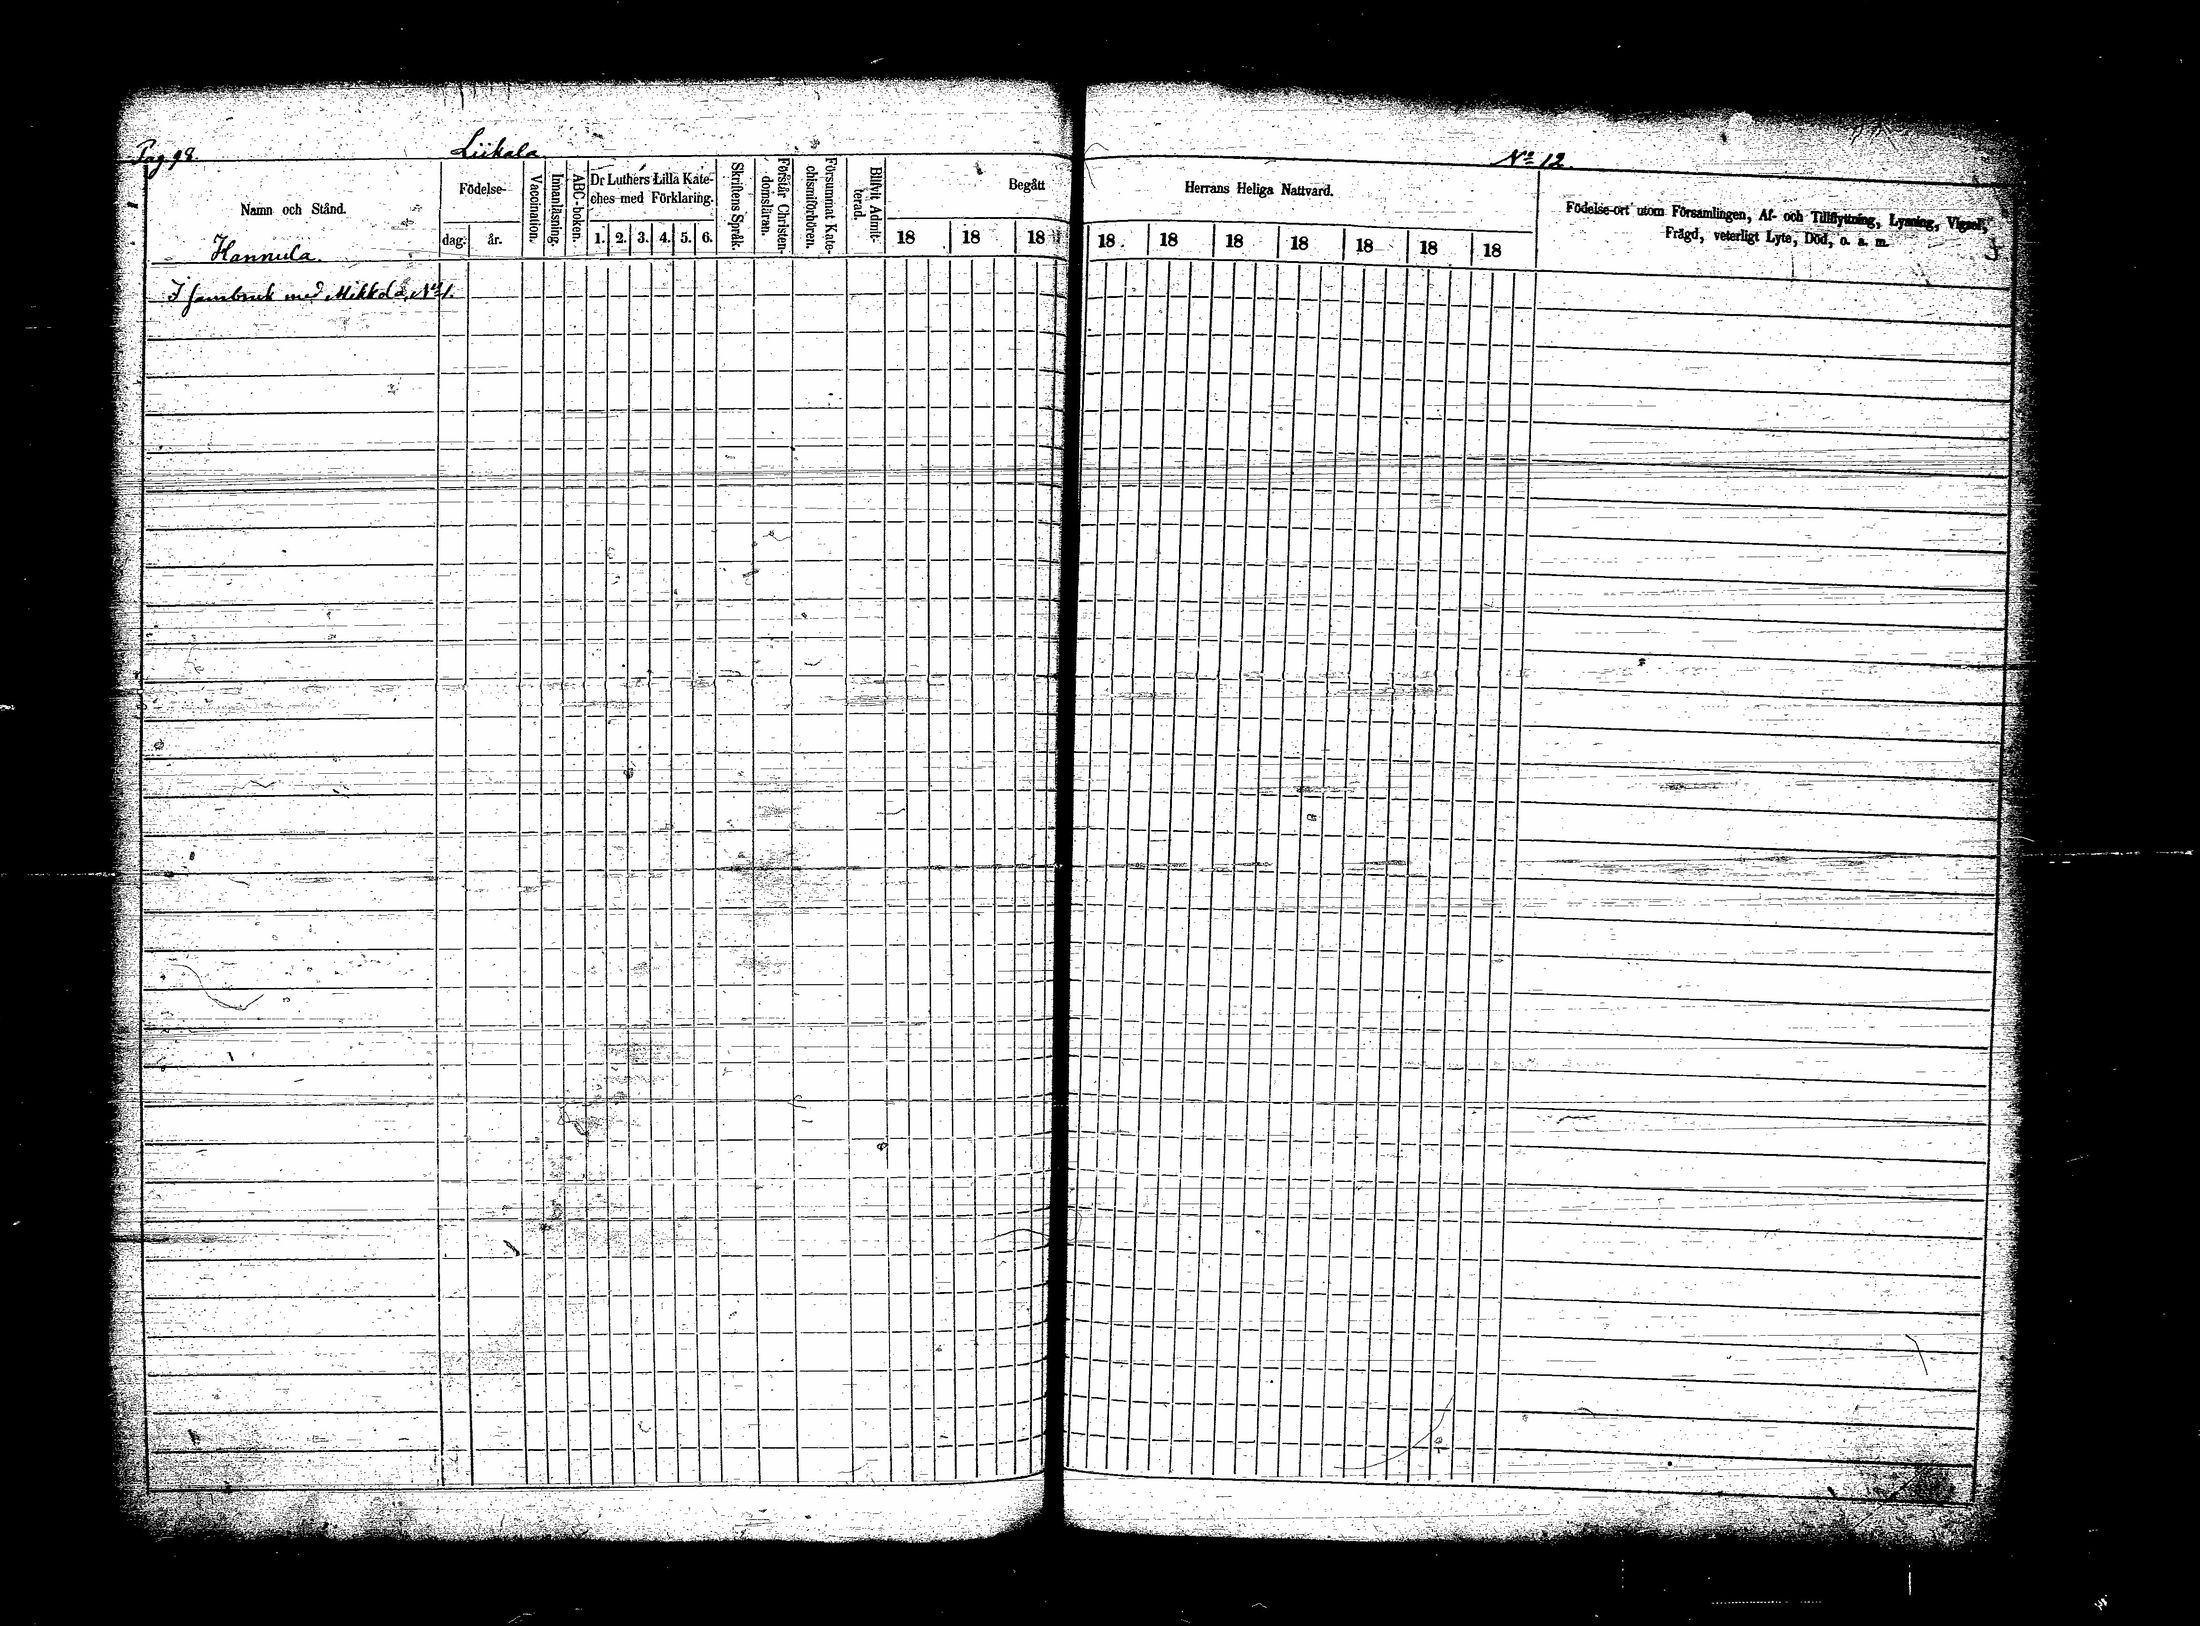 Pag 98.
Liikala
Nº 12.
Namn och Stånd.
Födelse-
dag.
år.
Vaccination.
Innanläsning.
ABC-boken.
Dr Luthers Lilla Kate-
ches med Förklaring.
1. 2. 3. 4. 5. 6.
Skriftens Språk.
Förstår Christen-
domsläran.
Försummat Kate-
chismiförhören.
Blifvit Admit-
terad.
Begått
18 18 18
Herrans Heliga Nattvard.
18 18 18 18 18 18 18
Födelse-ort utom Församlingen, Af- och Tillflyttning, Lysning, Vigsel,
Frägd, veterligt Lyte, Död, o. s. m.
Hannula.
I sambruk med Mikkola, Nº 1.